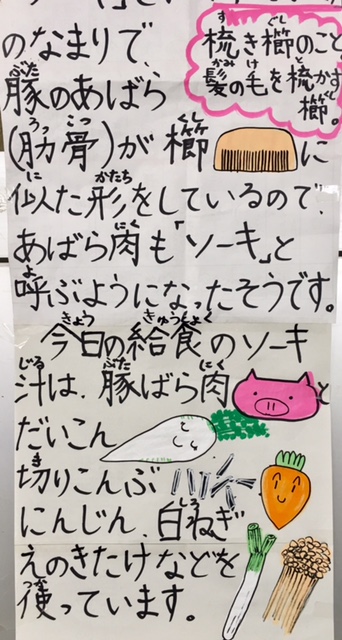 のなまりで、
梳き櫛のこと
髪の毛を梳かす
櫛。
豚のあばら
(肋骨)が櫛に
似た形をしているので、
あばら肉も「ソーキ」と
呼ぶようになったそうです。
今日の給食のソーキ
汁は、豚ばら肉と
だいこん
切りこんぶ
にんじん、白ねぎ
えのきたけなどを
使っています。